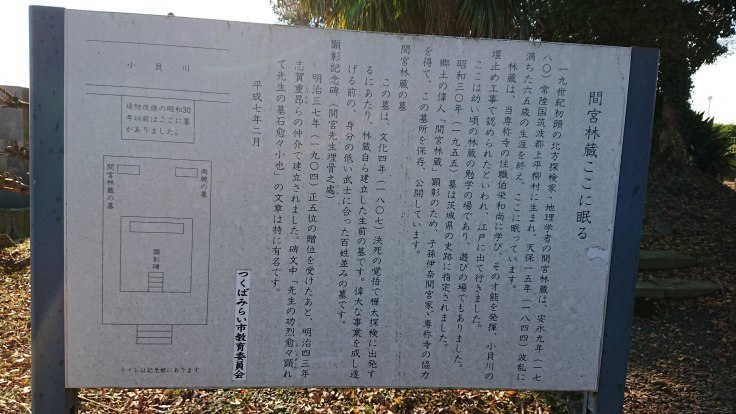 間宮林蔵ここに眠る
一九世紀初頭の北方探検家・地理学者の間宮林蔵は、安永九年（一七
八〇）常陸国筑波郡上平柳村に生まれ、天保一五年（一八四四）波乱に
満ちた六五歳の生涯を終え、ここに眠っています。
林蔵は、当専称寺の住職伯栄和尚に学び、その才能を発揮、小貝川の
堰止め工事で認められたといわれ、江戸に出て行きました。
ここは幼い頃の林蔵の勉学の場であり、遊びの場でもありました。
昭和三〇年（一九五五）墓は茨城県の史跡に指定されました。
郷土の偉人「間宮林蔵」顕彰のため、子孫伊奈間宮家・専称寺の協力
を得て、この墓所を保存、公開しています。
間宮林蔵の墓
この墓は、文化四年（一八〇七）決死の覚悟で樺太探検に出発す
るにあたり、林蔵自ら建立した生前の墓です。偉大な事業を成し遂
げる前の、身分の低い武士に合った百姓並みの墓です。
顕彰記念碑（間宮先生埋骨之処）
明治三七年（一九〇四）正五位の贈位を受けたあと、明治四三年
志賀重昂らの仲介で建立されました。碑文中「先生の功烈愈々顕れ
て先生の墓石愈々小也」の文章は特に有名です。
平成七年二月
つくばみらい市教育委員会
小貝川
堤防改修の昭和30
年以前はここに墓
がありました。
両親の墓
間宮林蔵の墓
顕彰碑
トイレは記念館にあります